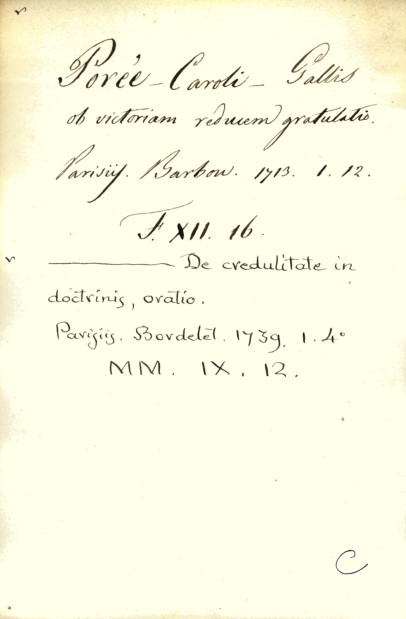 Porée - Caroli - Gallis
ob victoriam reducem gratulatio.
Parisiis. Barbou. 1713. 1. 12.
F. XII. 16.
De credulitate in
doctrinis, oratio.
Parisiis. Bordelet. 1739. 1. 4°
MM. IX. 12.
C